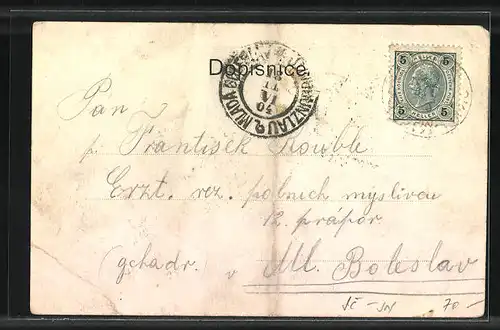 Dopisnice.
MLADÁ BOLESLAV JUNGBUNZLAU
5 5
5 HELLER 5
Pan
p. František Kouble
Erzt. rez. polních myslivcu
12. prápor
(gehadr.) v Ml. Boleslav
70.-